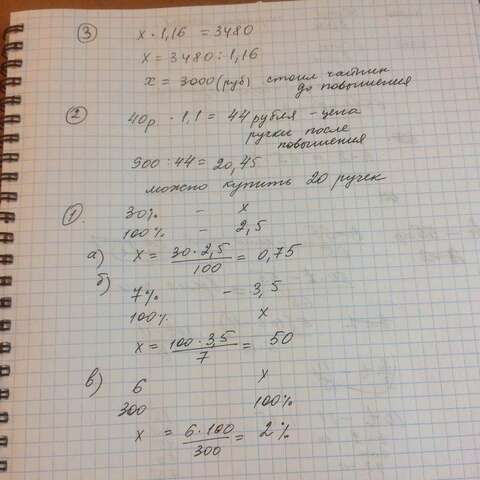 3 x · 1,16 = 3480
x = 3480 : 1,16
x = 3000 (руб) стоил чайник
до повышения
2 40р · 1,1 = 44 рубля - цена
ручки после
повышения
900 : 44 = 20,45
можно купить 20 ручек
1. 30% - x
100% - 2,5
а) x = 30 · 2,5 / 100 = 0,75
б)
7% - 3,5
100% x
x = 100 · 3,5 / 7 = 50
в) 6 x
300 100%
x = 6 · 100 / 300 = 2%